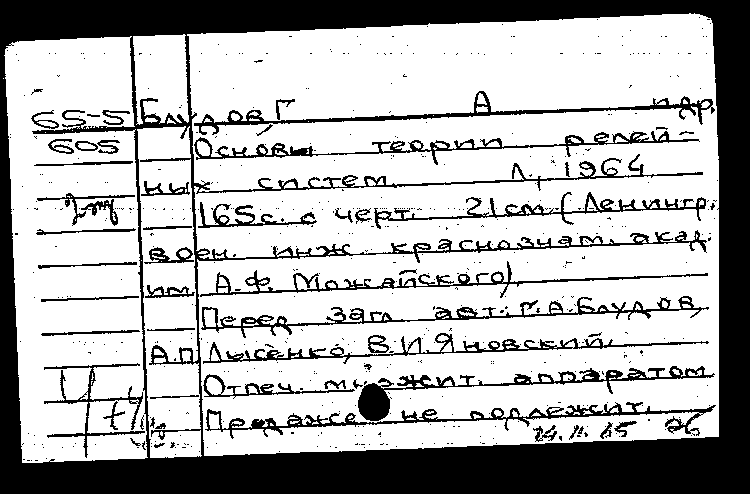 65-5 Блудов, Г А и др.
605 Основы теории релей-
ных систем. Л., 1964
165с. с черт. 21см (Ленингр.
воен. инж. краснознам. акад.
им. А.Ф. Можайского).
Перед загл. авт.: Г.А.Блудов,
А.П. Лысенко, В.И.Яновский.
Отпеч. множит. аппаратом
Продаже не подлежит.